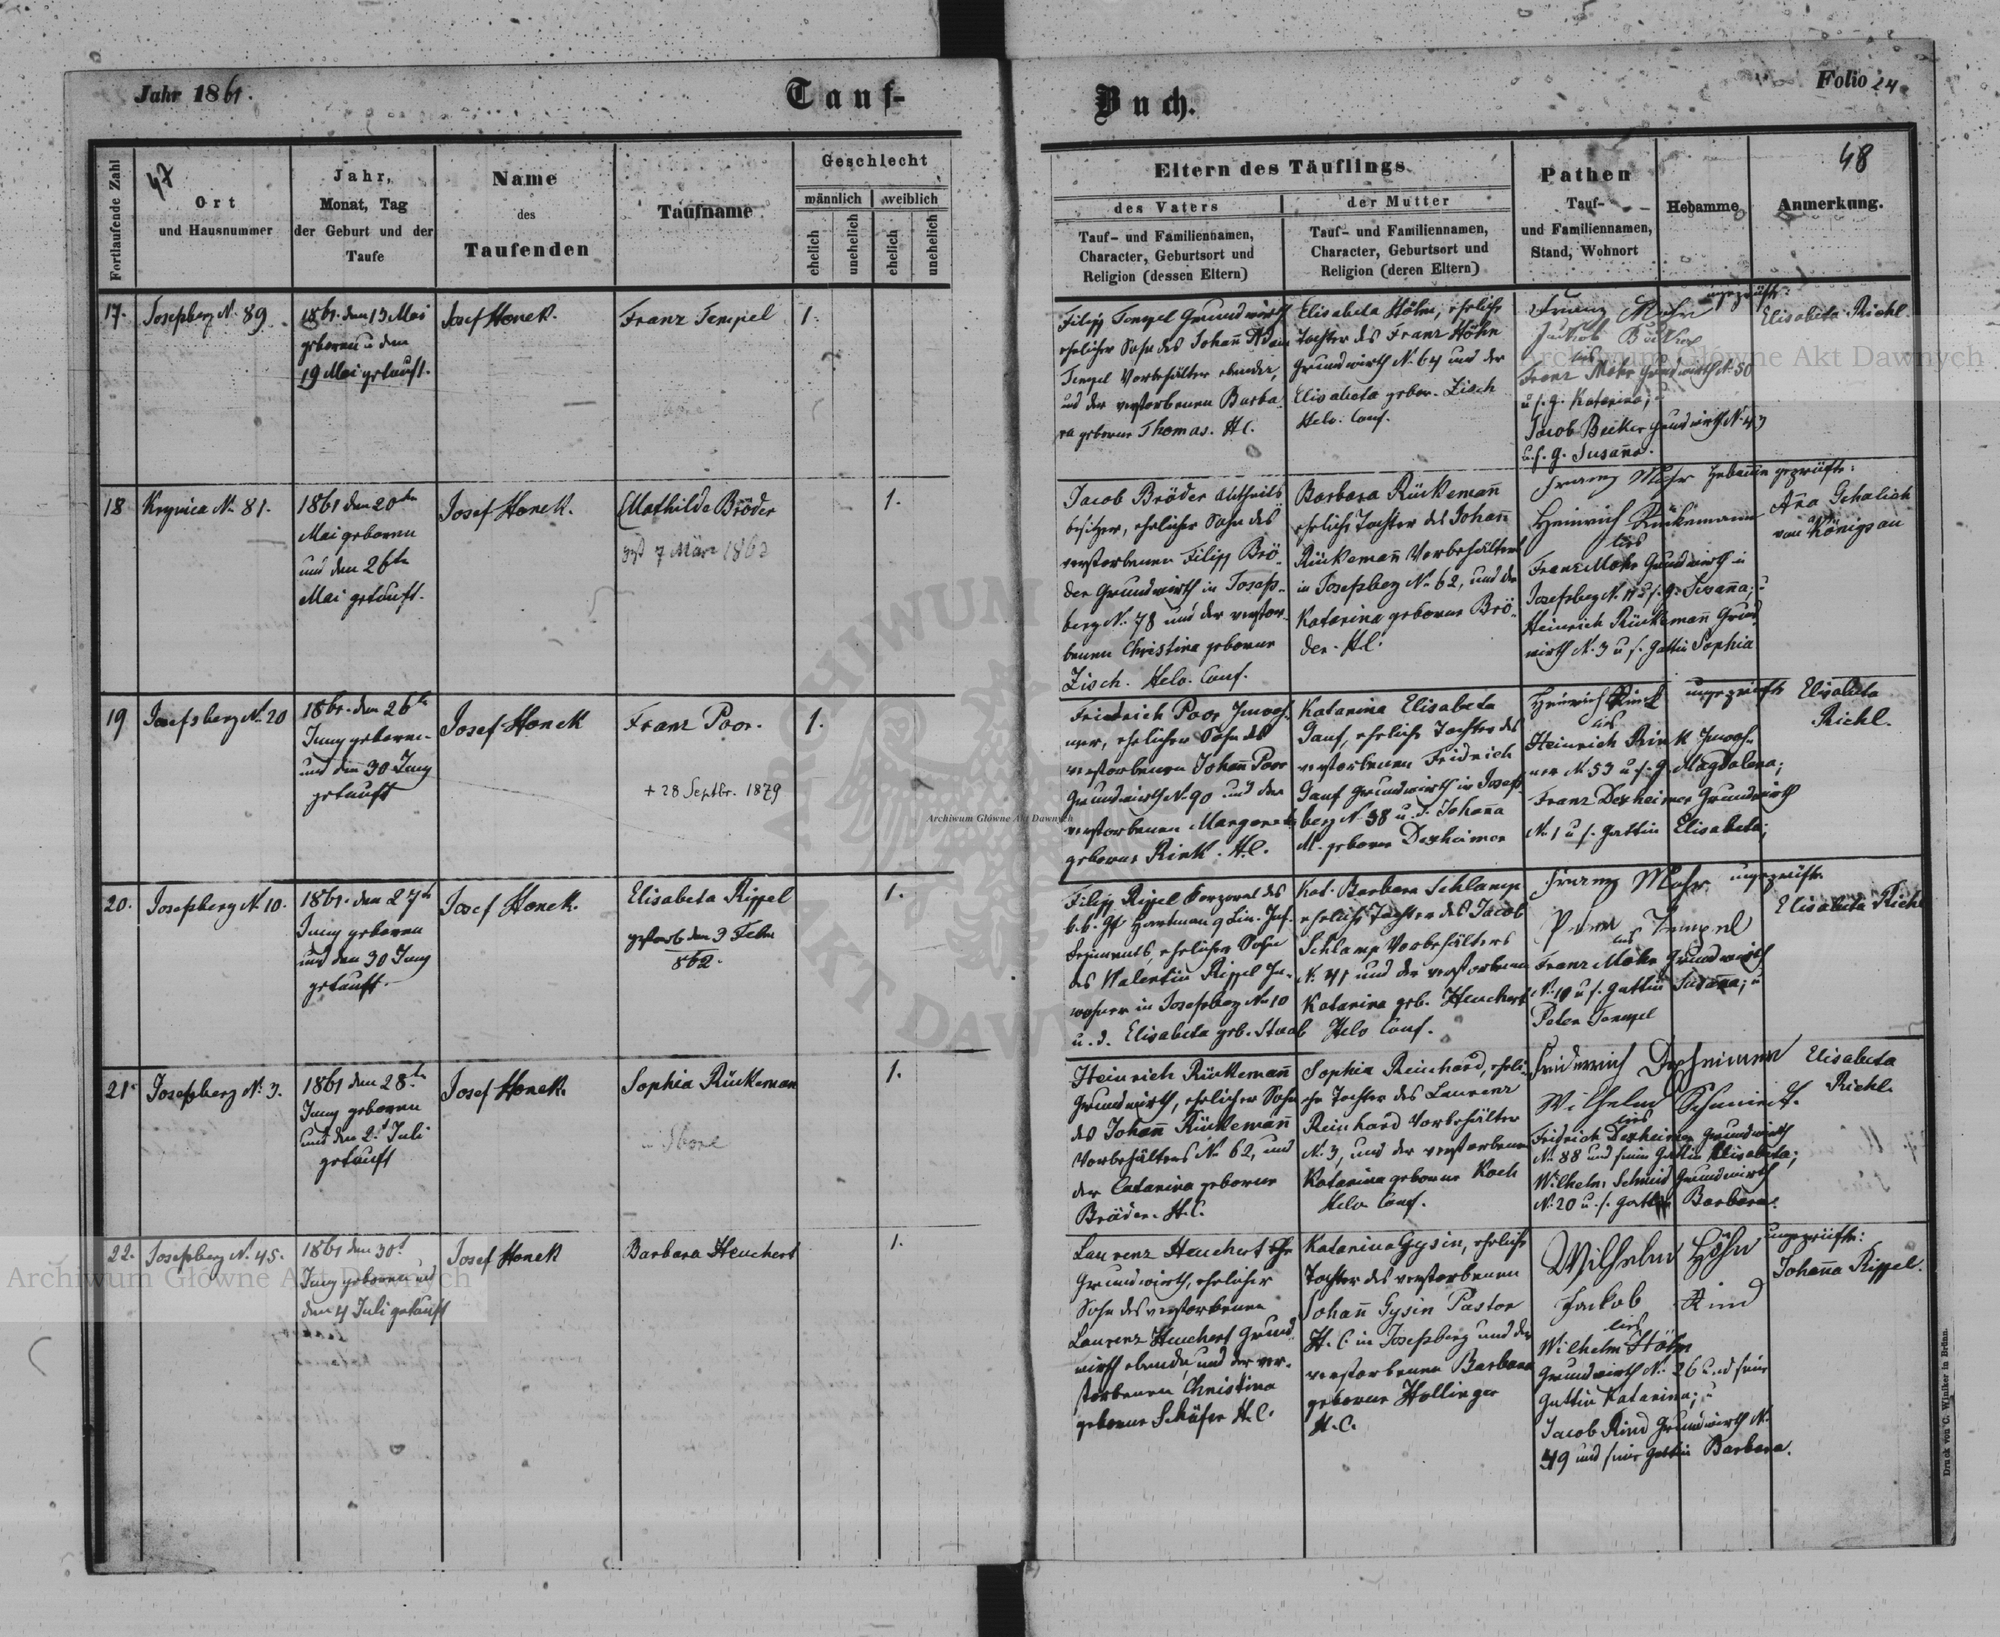 Jahr 1861.
Tauf-
Buch.
Folio 24
47
48
Fortlaufende Zahl
Ort
und Hausnummer
Jahr,
Monat, Tag
der Geburt und der
Taufe
Name
des
Taufenden
Taufname
Geschlecht
männlich
weiblich
ehelich
unehelich
ehelich
unehelich
Eltern des Täuflings
des Vaters
der Mutter
Tauf- und Familiennamen,
Character, Geburtsort und
Religion (dessen Eltern)
Tauf- und Familiennamen,
Character, Geburtsort und
Religion (deren Eltern)
Pathen
Tauf-
und Familiennamen,
Stand, Wohnort
Hebamme
Anmerkung.
17.
Josefsberg N. 89
1861. den 13 Mai
geboren u den
19 Mai getauft.
Josef Honek.
Franz Tempel
1.
Filipp Tempel Grundwirth
ehelicher Sohn des Johann Adam
Tempel Vorbehälter
und der verstorbenen Barba-
ra geborne Thomas. H.C.
Elisabeta Höhn, eheliche
Tochter des Franz Höhn
Grundwirth N. 64 und der
Elisabeta gebor. Zisch
Helv. Conf.
Franz Mohr
Jakob
Franz Mohr Grundwirth N. 50
u. s. g. Katarina;
Jacob Becker Grundwirth N. 43
u. s. g. Susanna.
ungeprüfte:
Elisabeta Richl.
18
Krynica N. 81.
1861 den 20ten
Mai geboren
und den 26te
Mai getauft.
Josef Honek.
Mathilde Bröder
gest 7 März 1863
1.
Jacob Bröder Antheils
besitzer, ehelicher Sohn des
verstorbenen Filipp Brö-
der Grundwirth in Josefs-
berg N. 78 und der verstor-
benen Christina geborne
Zisch. Helv. Conf.
Barbara Rückemann
eheliche Tochter des Johann
Rückemann Vorbehälters
in Josefsberg N. 62, und der
Katarina geborne Brö-
der. H.C.
Franz Mohr
Heinrich Rückemann
Franz Mohr Grundwirth in
Josefsberg N. 19 u s. g. Susanna; u
Heinrich Rückemann Grund-
wirth N. 3 u s. Gattin Sophia
Hebamme geprüfte:
Ana Schalich
von Königsau
19
Josefsberg N. 20
1861. den 26te
Juny geboren
und den 30 Juny
getauft
Josef Honek
Franz Poor.
+ 28 Septbr. 1879
1.
Friedrich Poor Inwoh-
ner, ehelicher Sohn des
verstorbenen Johann Poor
Grundwirth N. 90 und der
verstorbenen Margareta
geborne Rink. H.C.
Katarina Elisabeta
Ganf, eheliche Tochter des
verstorbenen Fridrich
Ganf Grundwirth in Josefs-
berg N. 38 u. d. Johanna
M. geborne Dexheimer
Heinrich Rink
Heinrich Rink Inwoh-
ner N. 53 u. s. g. Magdalena;
Franz Dexheimer Grundwirth
N. 1 u s. Gattin Elisabeta;
ungeprüfte
Elisabeta
Richl.
20.
Josefsberg N. 10.
1861. den 27te
Juny geboren
und den 30 Juny
getauft.
Josef Honek.
Elisabeta Rippel
gestorb den 3 Feber
862.
1.
Filipp Rippel Korporal des
k. k. Gf Hartman 9 Lin. Inf.
Regiments, ehelicher Sohn
des Valentin Rippel In-
wohner in Josefsberg N. 10
u. d. Elisabeta geb. Staab
Kat. Barbara Schlamp
eheliche Tochter des Jacob
Schlamp Vorbehälters
N. 41 und der verstorbenen
Katarina geb. Heuchert
Helv Conf.
Franz Mohr
Peter Tempel
Franz Mohr Grundwirth
N. 19 u s. Gattin Susanna; u
Peter Tempel
ungeprüfte
Elisabeta Richl
21.
Josefsberg N. 3.
1861 den 28te
Juny geboren
und den 2t Juli
getauft
Josef Honek.
Sophia Rückeman
1.
Heinrich Rückemann
Grundwirth, ehelicher Sohn
des Johann Rückemann
Vorbehälters N. 62, und
der Catarina geborne
Bröder. H.C.
Sophia Reinhard, eheli-
che Tochter des Laurenz
Reinhard Vorbehälter
N. 3, und der verstorbenen
Katarina geborne Koch
Helv. Conf.
Friderich Dexheimer
Wilhelm Schmied
Fridrich Dexheimer Grundwirth
N. 88 und seine Gattin Elisabeta;
Wilhelm Schmid Grundwirth
N. 20 u. s. Gattin Barbara.
Elisabeta
Richl.
22.
Josefsberg N. 45.
1861 den 30t
Juny geboren und
den 4 Juli getauft
Josef Honek
Barbara Heuchert
1.
Laurenz Heuchert
Grundwirth, ehelicher
Sohn des verstorbenen
Laurenz Heuchert Grund-
wirth ebenda, und der ver-
storbenen Christina
geborne Schäfer H.C.
Katarina Gysin, eheliche
Tochter des verstorbenen
Johann Gysin Pastor
H.C. in Josefsberg und der
verstorbenen Barbara
geborne Hollinger
H.C.
Wilhelm Höhn
Jackob Rind
Wilhelm Höhn
Grundwirth N. 26 und seine
Gattin Katarina; u
Jacob Rind Grundwirth N.
49 und seine Gattin Barbara.
ungeprüfte:
Johanna Rippel.
Druck von C. Winiker in Brünn.
Archiwum Główne Akt Dawnych
Archiwum Główne Akt Dawnych
Archiwum Główne Akt Dawnych
ARCHIWUM
AKT DAWNYCH